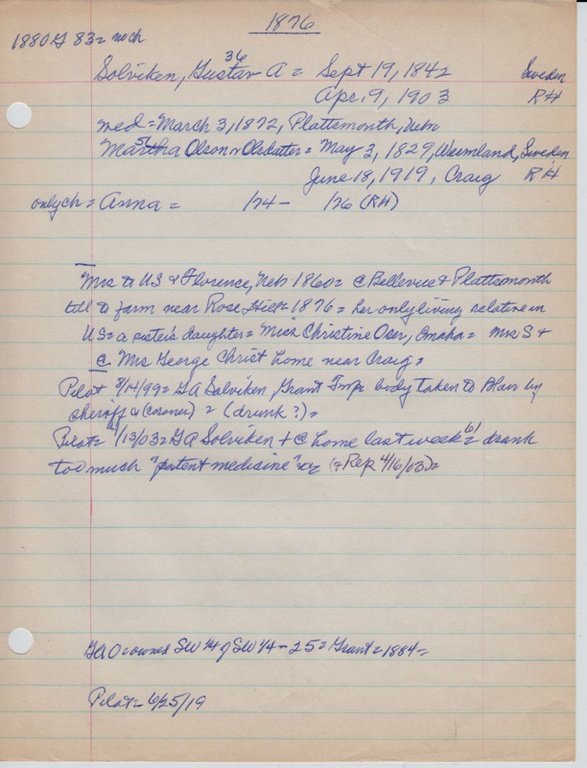 1876
1880 G 83= no ch
36
Solviken, Gustav A = Sept 19, 1842 Sweden
Apr. 9, 1903 RH
med = March 3, 1872, Plattsmouth, Nebr
Martha Olson or Olsdatter = May 3, 1829, Wermland, Sweden
June 18, 1919, Craig RH
only ch = Anna = /74 - /76 (RH)
Mrs to US & Florence, Neb 1860= @ Bellevue & Plattsmouth
till to farm near Rose Hill= 1876 = her only living relative in
US= a sister's daughter = Miss Christine Oser, Omaha = Mrs S +
@ Mrs George Christ home near Craig =
Pilot 8/14/99= GA Solviken, Grant Twp body taken to Blair by
sheriff & (coroner) = (drunk?) =
Pilot= /13/03= GA Solviken + @ home last week= 61 drank
too much "patent medicine" (= Rep 4/16/03)=
GAO owned SW 1/4 of SW 1/4 - 25= Grant= 1884=
Pilot= 6/25/19